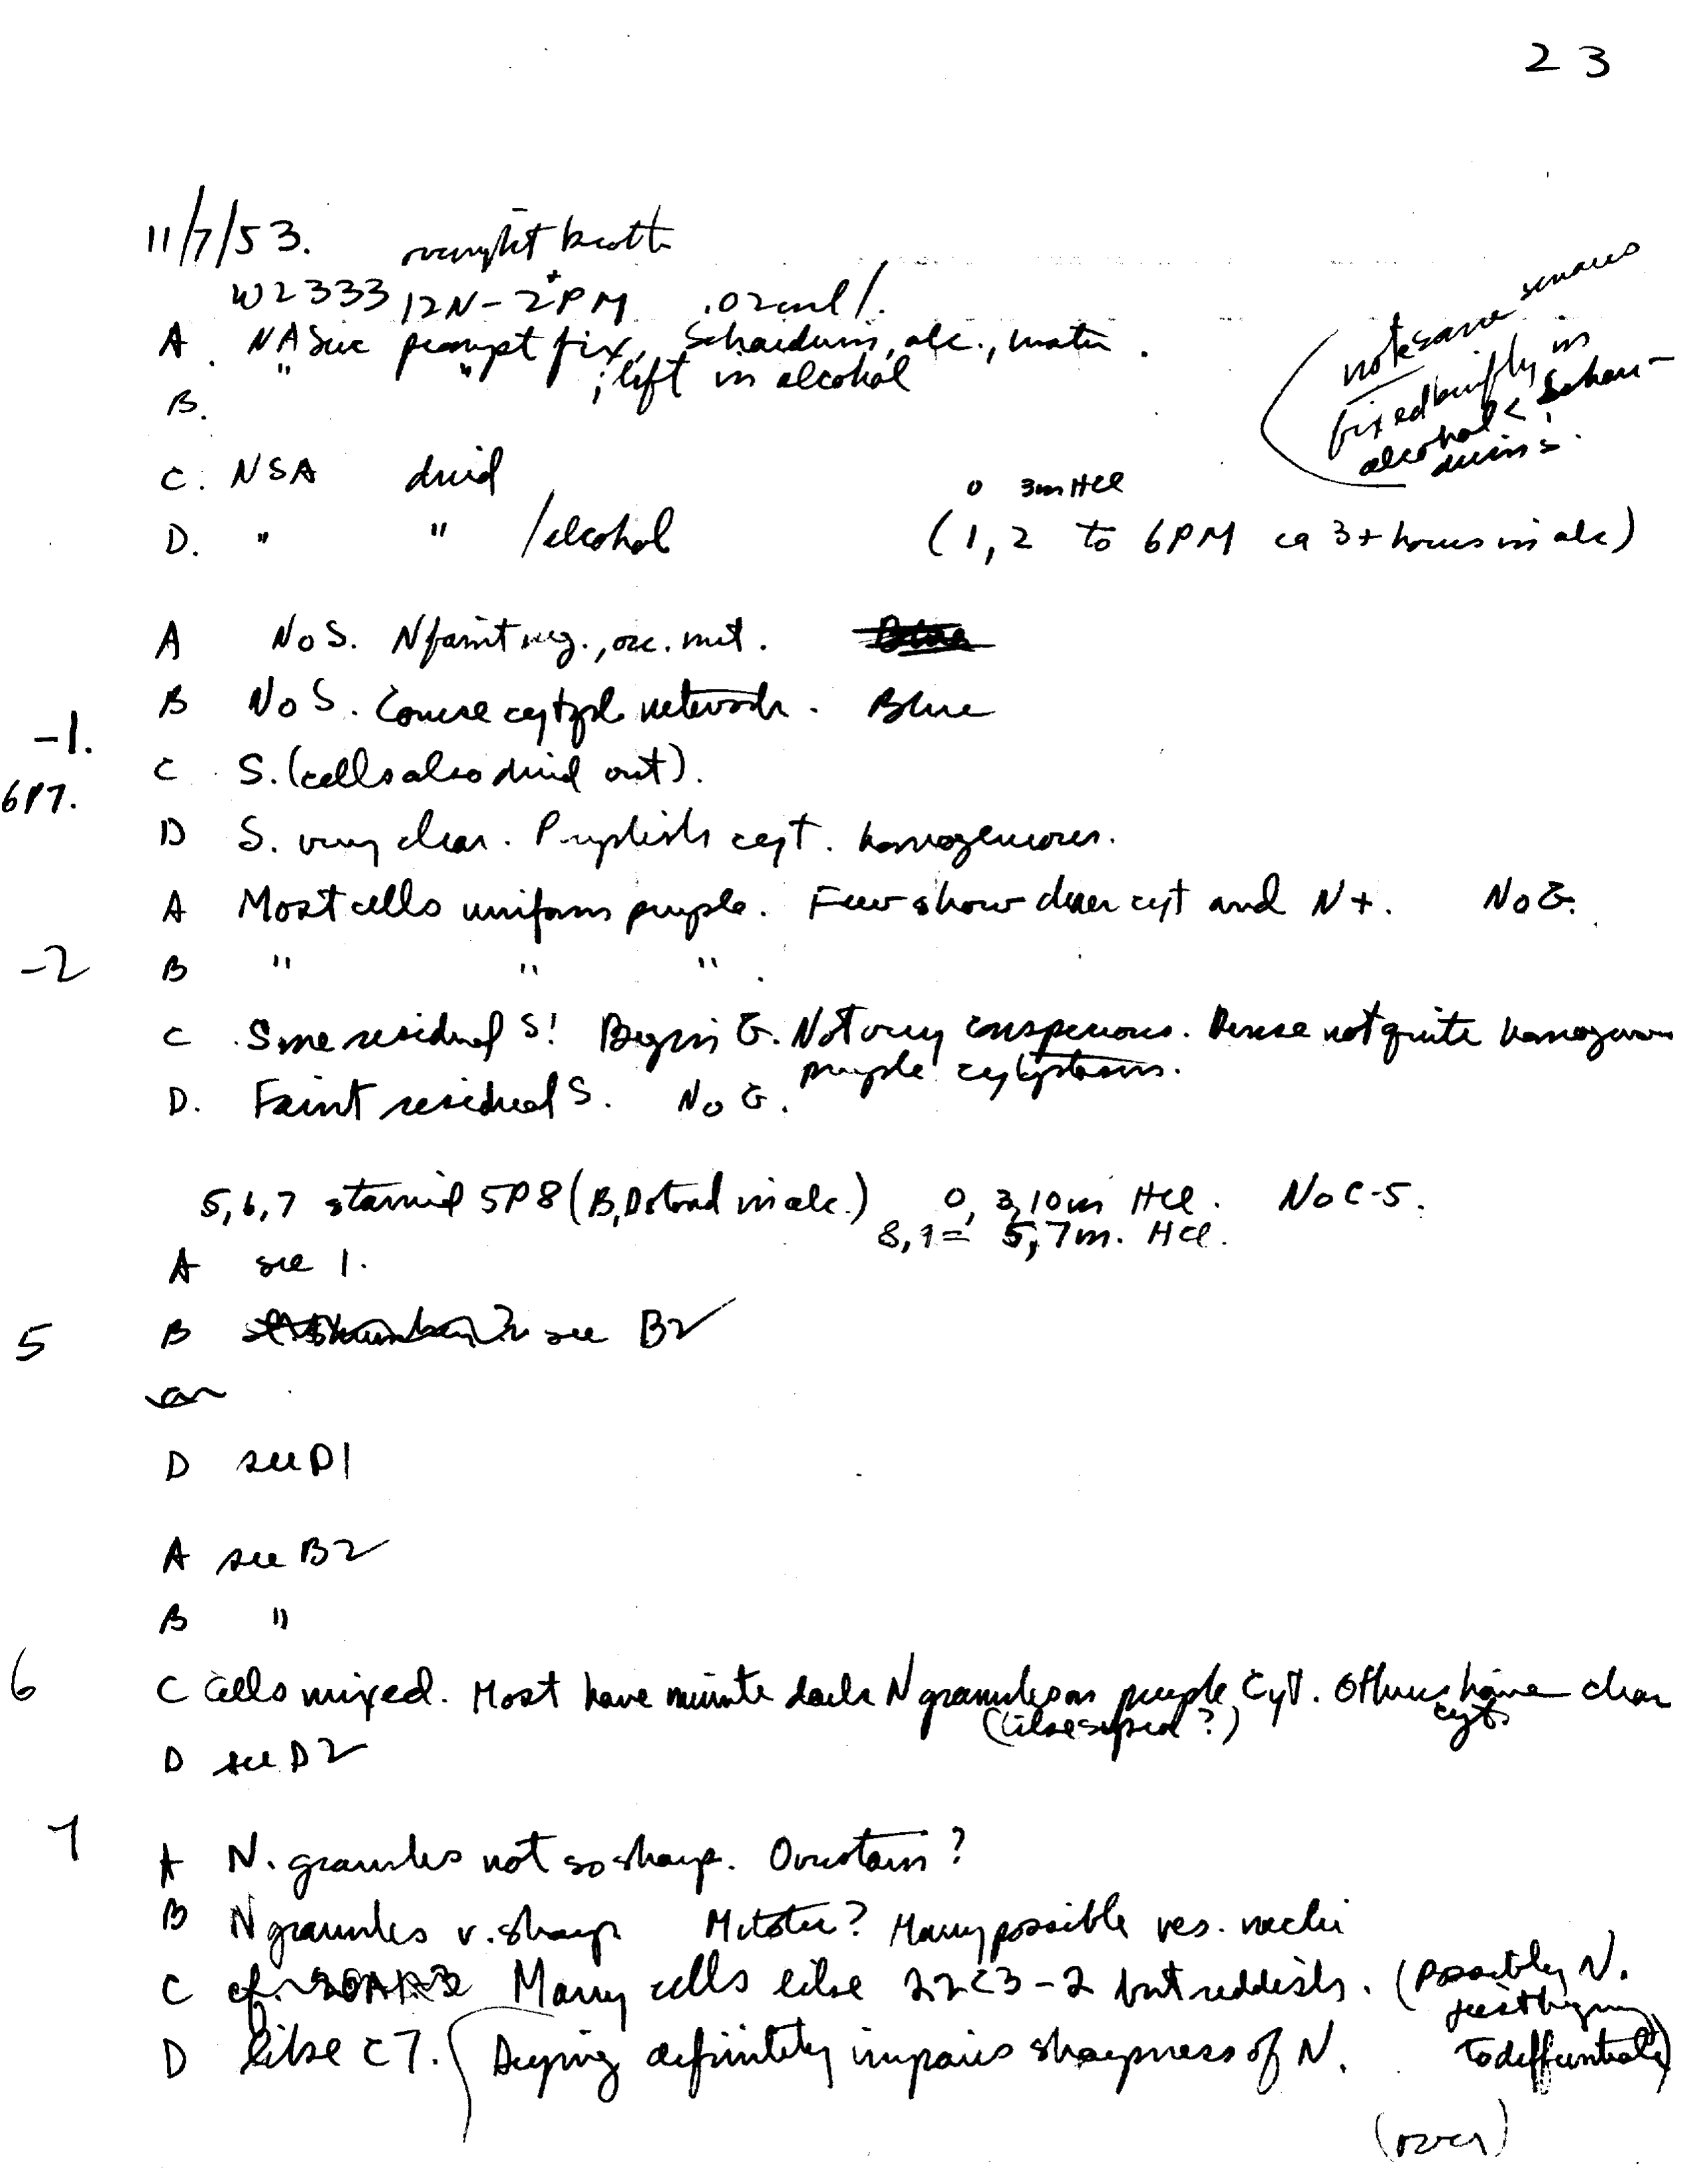 23
11/7/53. overnight broth
W2333 12N - 2+PM .02 ml/.
A. NA Suc prompt fix, Schaudinn, alc., water.
B. " " ; left in alcohol
(note same smears
fixed briefly in
alcohol < Schau-
dinns.
C. NSA dried
D. " " /alcohol
0 3m HCl
(1, 2 to 6PM ca 3+ hours in alc)
A No S. N faint neg., occ. net.
-1. B No S. Coarse cytopl network. Blue
6P7. C S. (cells also dried out).
D S. very clear. Purplish cyt. homogeneous.
A Most cells uniform purple. Few show clear cyt and N+. No G.
-2 B " " " .
C Some residual S! Begin G. Not very conspicuous. Dense not quite homogeneous
purple cytoplasm.
D. Faint residual S. No G.
5,6,7 stained 5P8 (B,D stored in alc.) 0, 3, 10m HCl. No C-5.
8,9 = 5,7m. HCl.
A see 1.
5 B see B2
D see D1
A see B2
B "
6 C Cells mixed. Most have minute dark N granules on purple cyt. Others have clear
cyt.
D see D2
7 A N. granules not so sharp. Overstain?
B N granules v. sharp Mitotic? Many possible ves. nuclei
C cf. Many cells like 22C3-2 but reddish. (Possibly N.
just begun
to differentiate)
D like C7. (Drying definitely impairs sharpness of N.
(over)